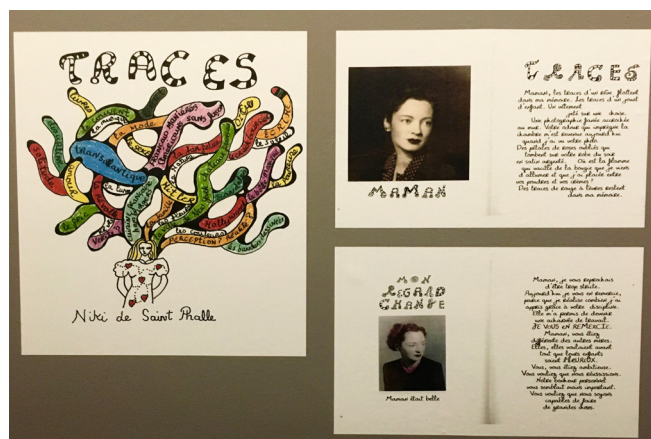 TRACES
livres
couvent
la musique
la Mode
transatlantique
HITLER
les couleurs
PERCEPTION?
Réalité?
les bandes dessinées
Niki de Saint Phalle
TRACES
Maman, les traces d'un rêve, flottent
dans ma mémoire. Les traces d'un jouet
d'enfant. Un vêtement
jeté sur une chaise.
Une photographie fanée accrochée
au mur. Votre odeur qui imprègne la
chambre m'est revenue aujourd'hui
quand j'ai vu votre photo.
Des pétales de roses oubliés qui
tombent sur votre robe du soir
en satin argenté. Où est la flamme
qui vacille de la bougie que je viens
d'allumer et que j'ai placée entre
vos poudres et vos crèmes?
Des traces de rouge à lèvres restent
dans ma mémoire.
MAMAN
MON
REGARD
CHANGE
Maman était belle
Maman, je vous reprochais
d'être trop stricte.
Aujourd'hui je vous en remercie,
parce que je réalise combien j'ai
appris grâce à votre discipline.
Elle m'a permis de devenir
une acharnée de travail.
JE VOUS EN REMERCIE.
Maman, vous étiez
différente des autres mères.
Elles, elles voulaient avant
tout que leurs enfants
soient HEUREUX.
Vous, vous étiez ambitieuse.
Vous vouliez que nous réussissions.
Notre bonheur personnel
vous semblait moins important.
Vous vouliez que nous soyons
capables de faire
de grandes choses.